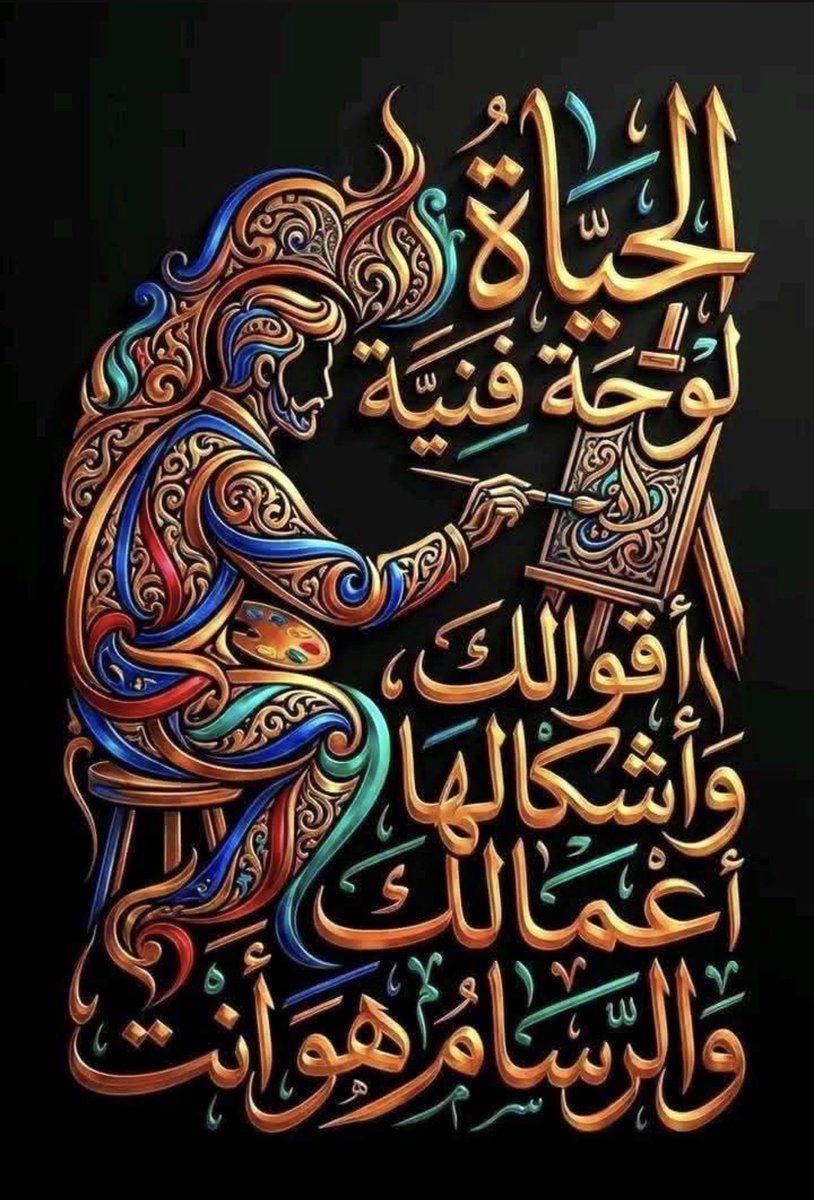 الحَيَّاةُ
لَوْحَة فِنِيَّة
أقوالك
وَأشكْالهَا
أعْمَالك
وَالرَّسَامُ هوَ أَنِت